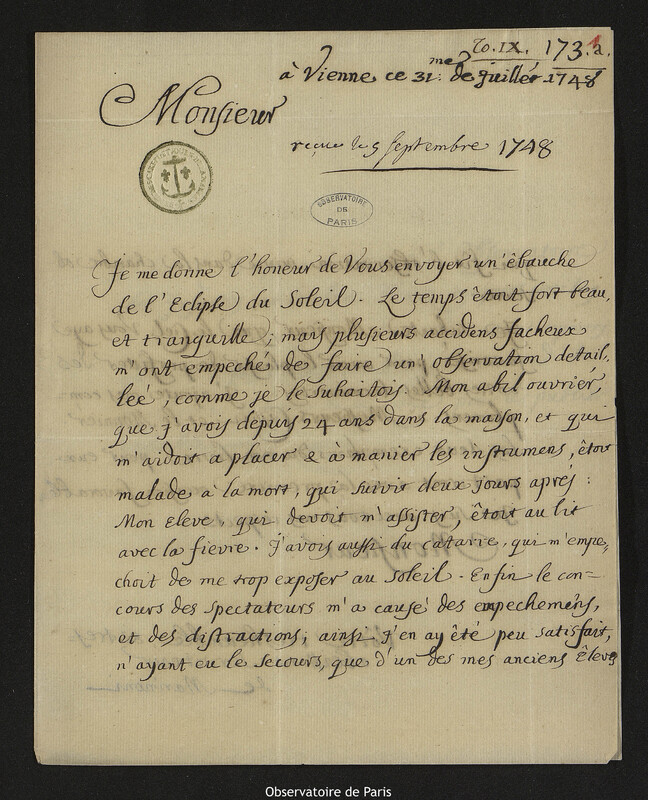 TO. IX. 173. a.
à Vienne ce 31:me de Juillet 1748
Monsieur
reçue le 9 Septembre 1748
OBSERVATOIRE
DE
PARIS
Je me donne l'honeur de Vous envoyer un'êbauche
de l'Eclipse du Soleil. Le temps êtoit fort beau,
et tranquille; mais plusieurs accidens facheux
m'ont empeché de faire un' observation detail,
leé, comme je le suhaitois. Mon abil ouvrier,
que j'avois depuis 24 ans dans la maison, et qui
m'aidoit a placer & à manier les instrumens, êtoit
malade à la mort, qui suivit deux jours aprés:
Mon Eleve, qui devoit m'assister, êtoit au lit
avec la fievre. J'avois aussi du catarre, qui m'empe,
choit de me trop exposer au soleil. Enfin le con-
cours des spectateurs m'a causé des empechemens,
et des distractions; ainsi j'en ay êté peu satisfait,
n'ayant eu le secours, que d'un des mes anciens Êleves
Observatoire de Paris